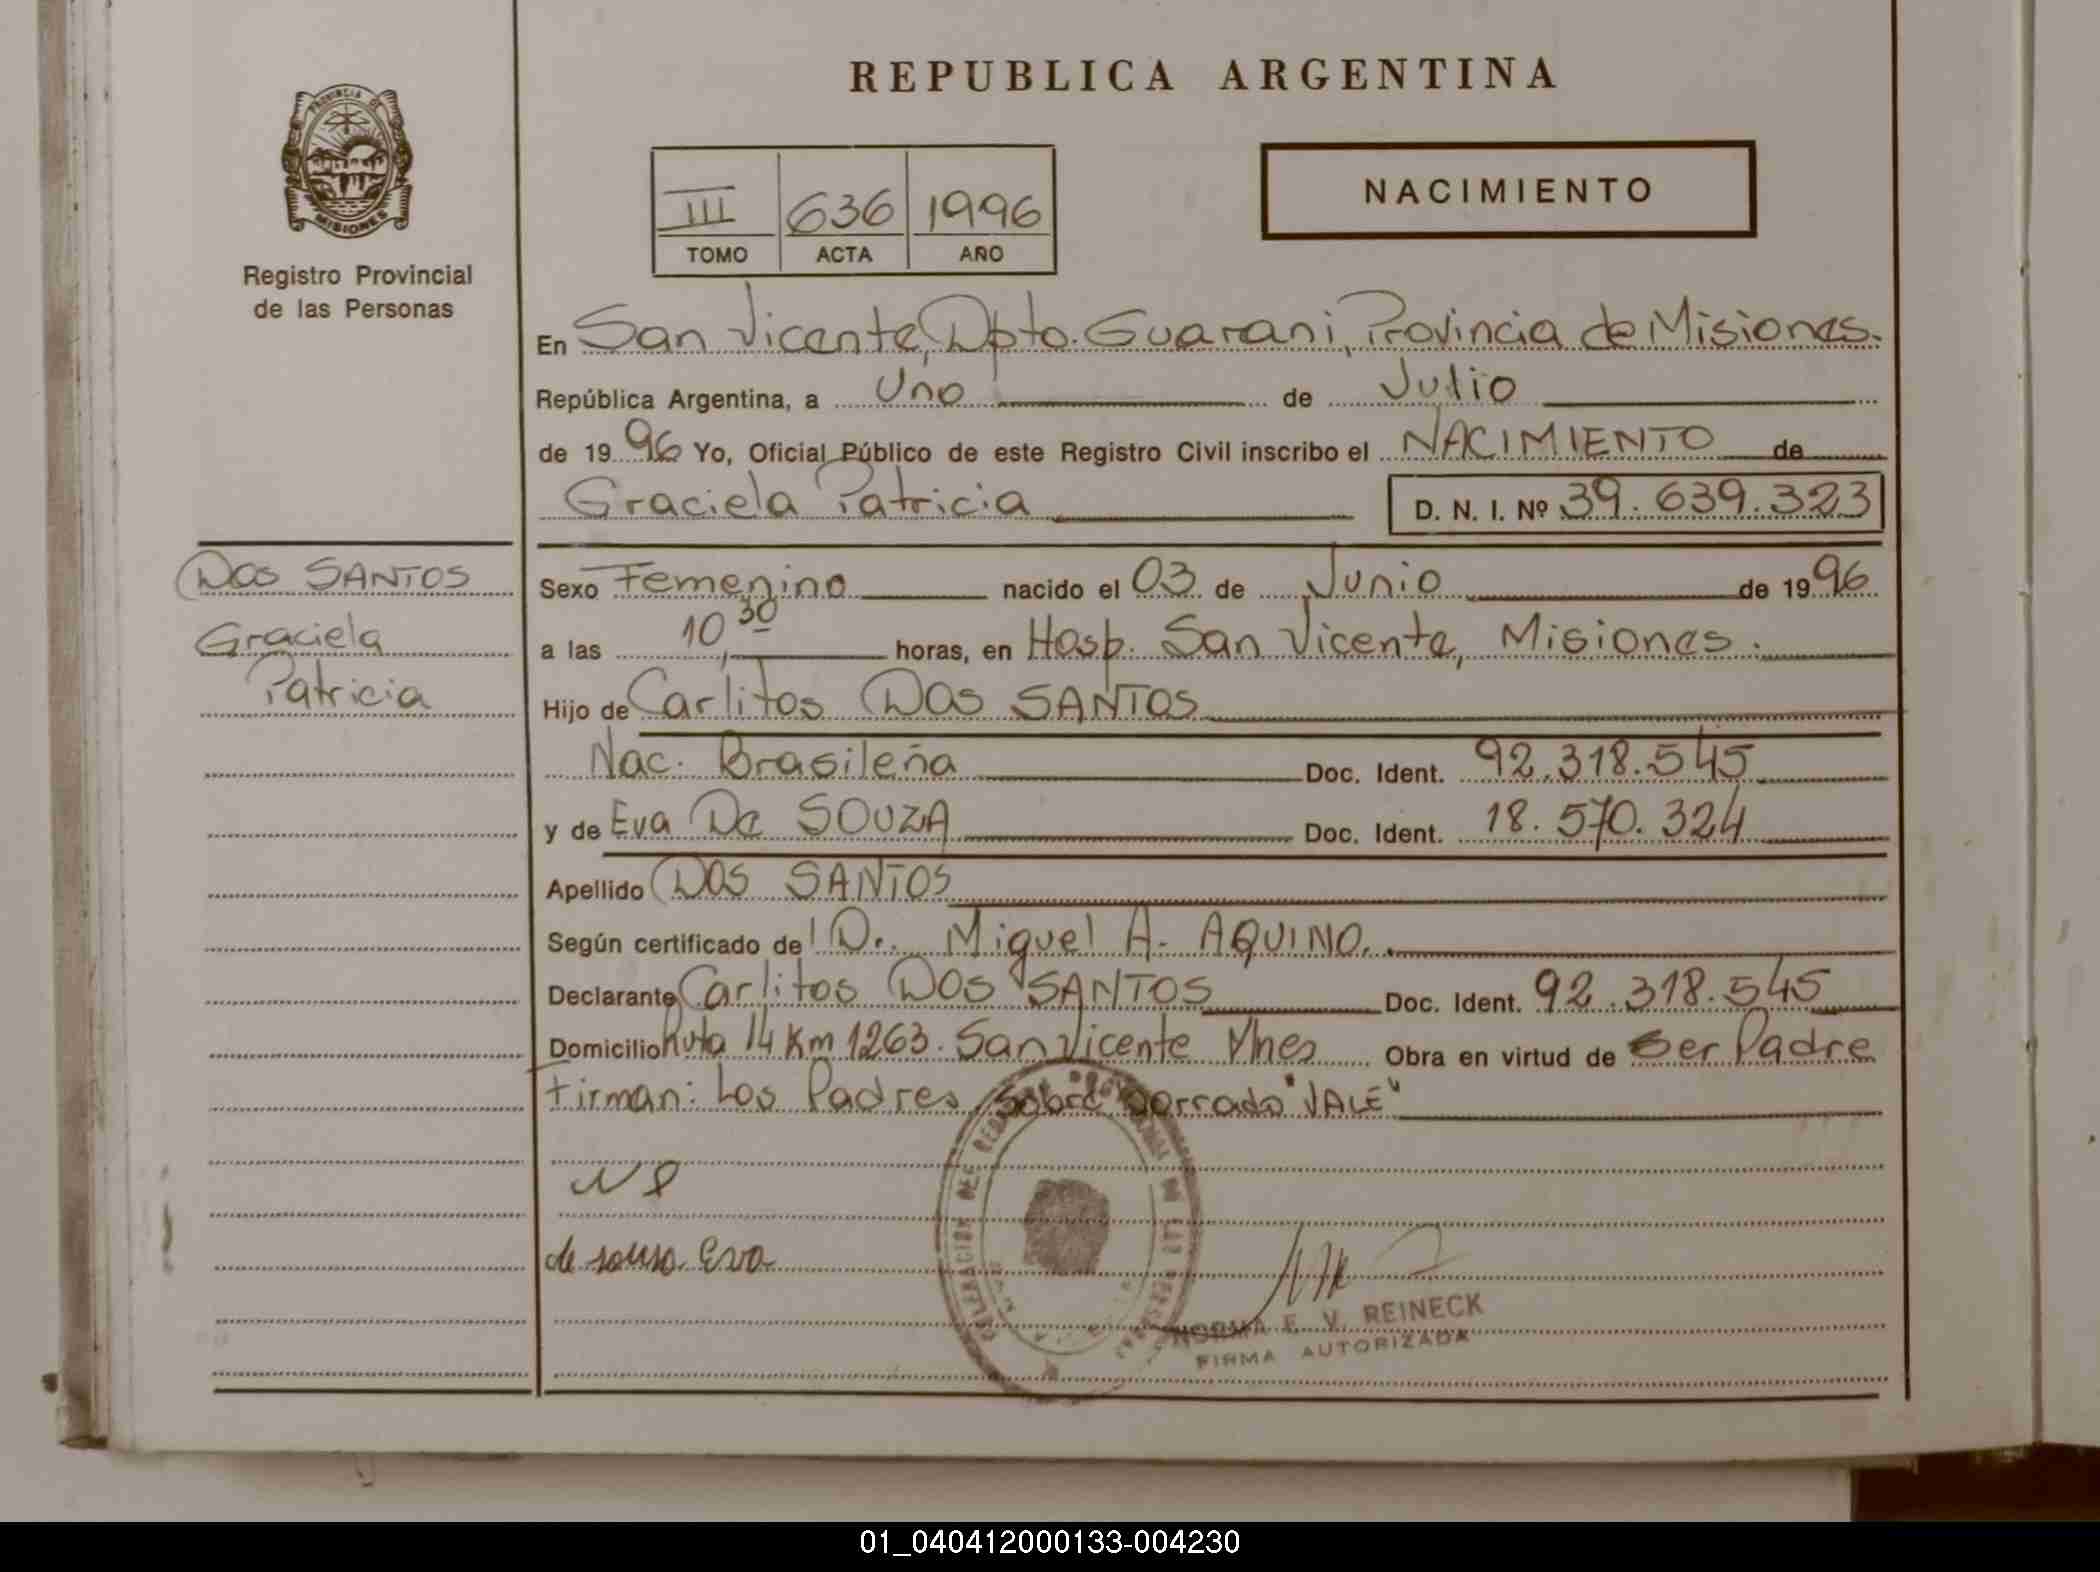 PROVINCIA DE
MISIONES
Registro Provincial
de las Personas
REPUBLICA ARGENTINA
III 636 1996
TOMO ACTA AÑO
NACIMIENTO
En San Vicente, Dpto. Guarani, Provincia de Misiones.
República Argentina, a Uno de Julio
de 1996 Yo, Oficial Público de este Registro Civil inscribo el NACIMIENTO de
Graciela Patricia D. N. I. Nº 39.639.323
DOS SANTOS
Graciela
Patricia
Sexo Femenino nacido el 03 de Junio de 1996
a las 10,30 horas, en Hosp. San Vicente, Misiones.
Hijo de Carlitos DOS SANTOS
Nac. Brasileña Doc. Ident. 92.318.545
y de Eva De SOUZA Doc. Ident. 18.570.324
Apellido DOS SANTOS
Según certificado de Dr. Miguel A. AQUINO.
Declarante Carlitos DOS SANTOS Doc. Ident. 92.318.545
Domicilio Ruta 14 Km 1263. San Vicente Mnes Obra en virtud de Ser Padre
Firman: Los Padres, Sobre borrado "VALE"
de souza Eva
NORMA E. V. REINECK
FIRMA AUTORIZADA
01_040412000133-004230